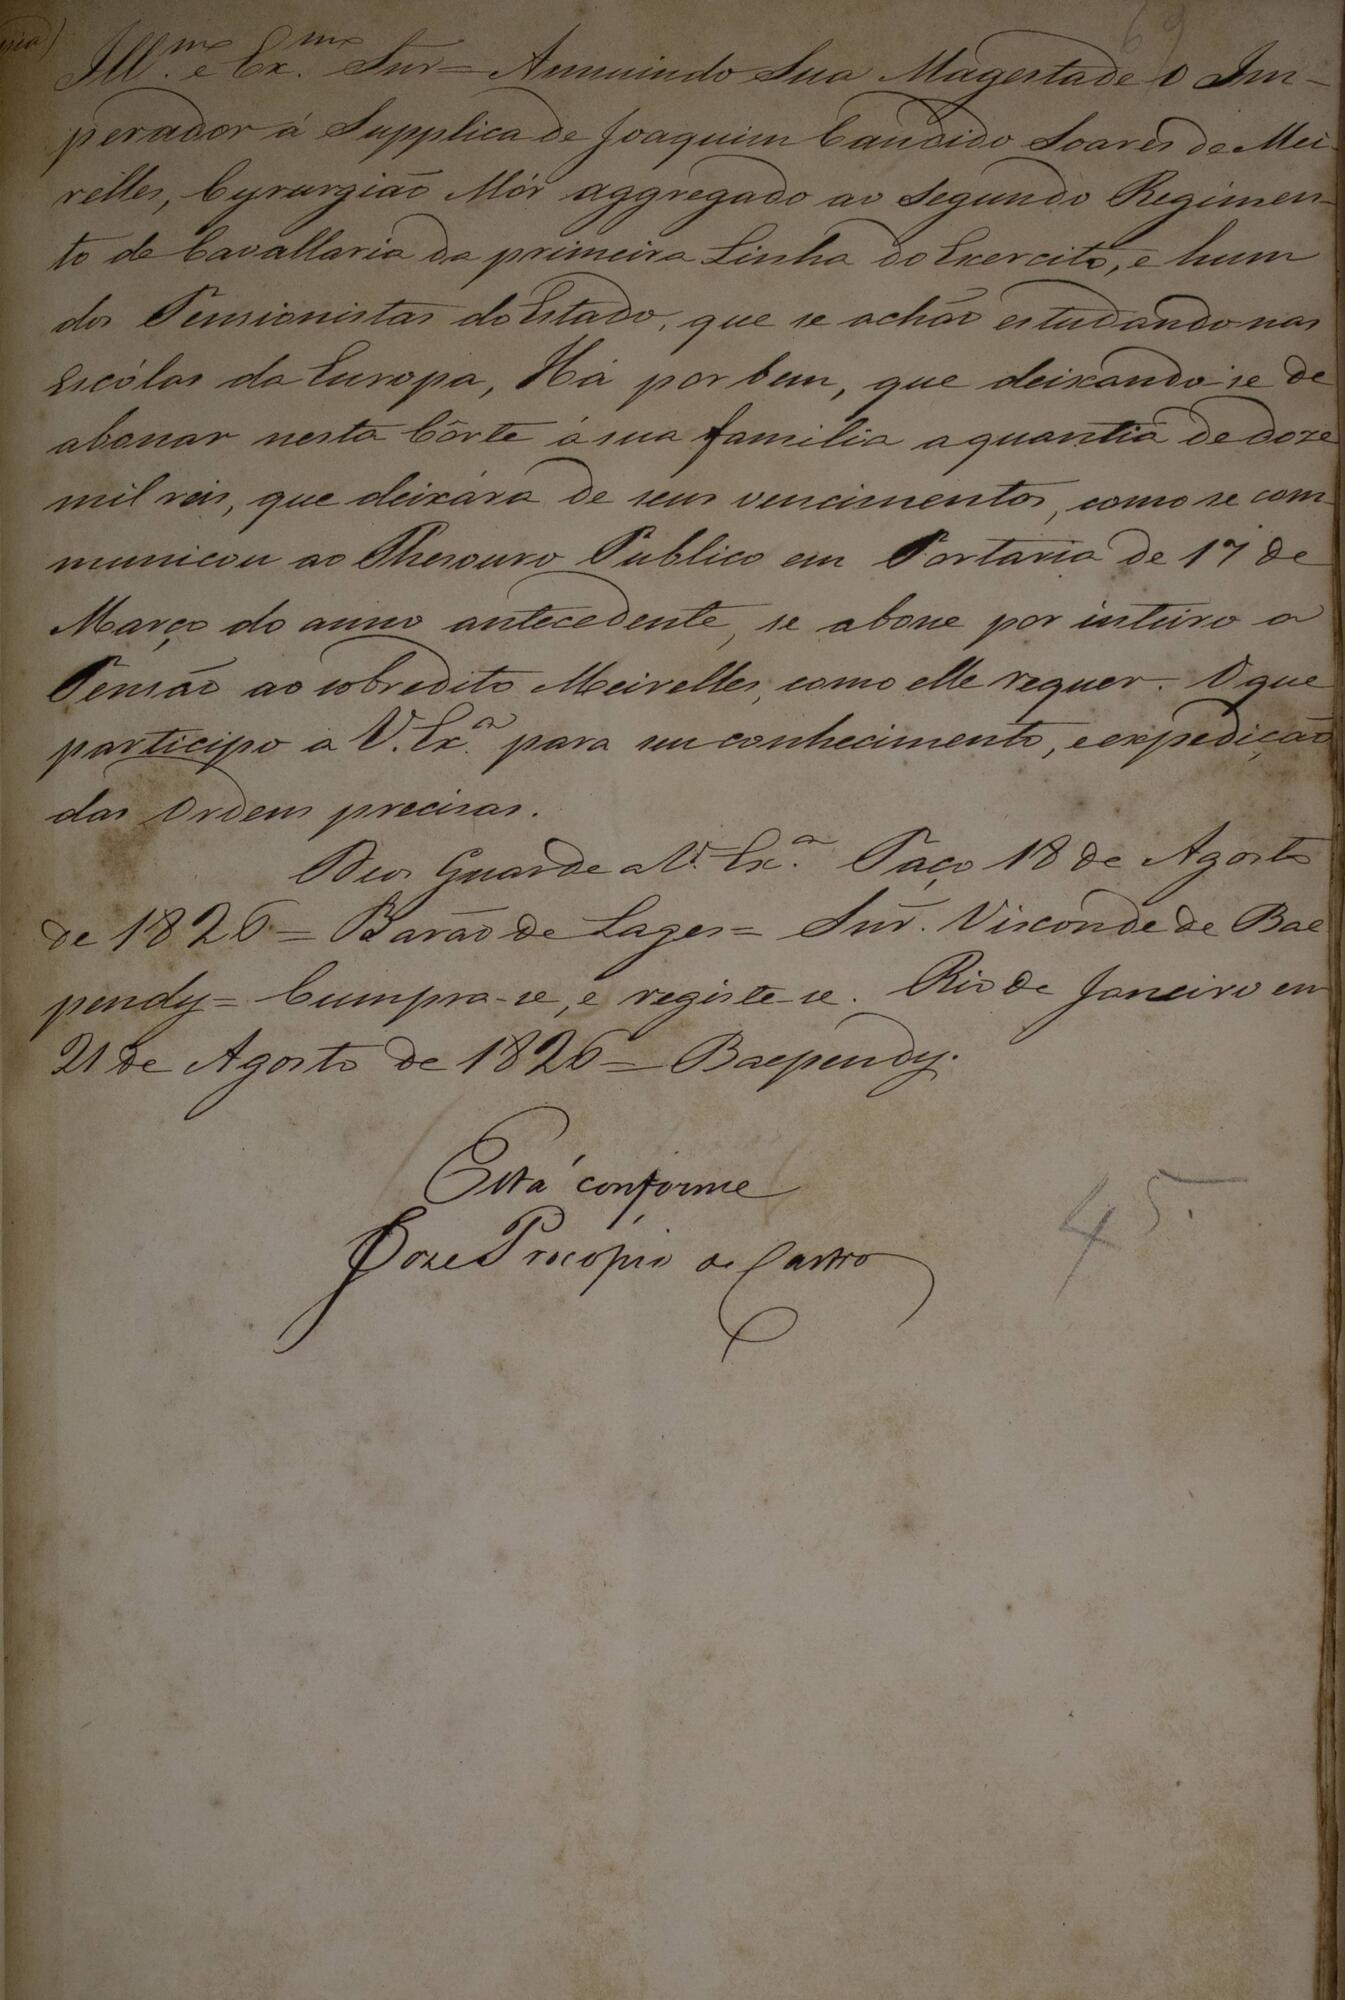 69
Ill.mo e Ex.mo Snr = Annuindo Sua Magestade O Im-
perador á Supplica de Joaquim Candido Soares de Mei-
relles, Cyrurgião Mór aggregado ao Segundo Regimen-
to de Cavallaria da primeira Linha do Exercito, e hum
dos Pensionistas do Estado, que se achão estudando nas
Escólas da Europa, Há por bem, que deixando-se de
abonar nesta Côrte á sua familia a quantia de doze
mil reis, que deixára de seus vencimentos, como se com-
municou ao Thesouro Publico em Portaria de 17 de
Março do anno antecedente, se abone por inteiro a
Pensão ao sobredito Meirelles, como elle requer. O que
participo a V. Ex.a para seu conhecimento, e expedição
das Ordens precisas.
Deos Guarde a V. Ex.a Paço 18 de Agosto
de 1826 = Barão de Lages = Snr. Visconde de Bae
pendy = Cumpra-se, e registe-se. Rio de Janeiro em
21 de Agosto de 1826 = Baependy.
Está conforme
Joze Procopio de Castro
45.